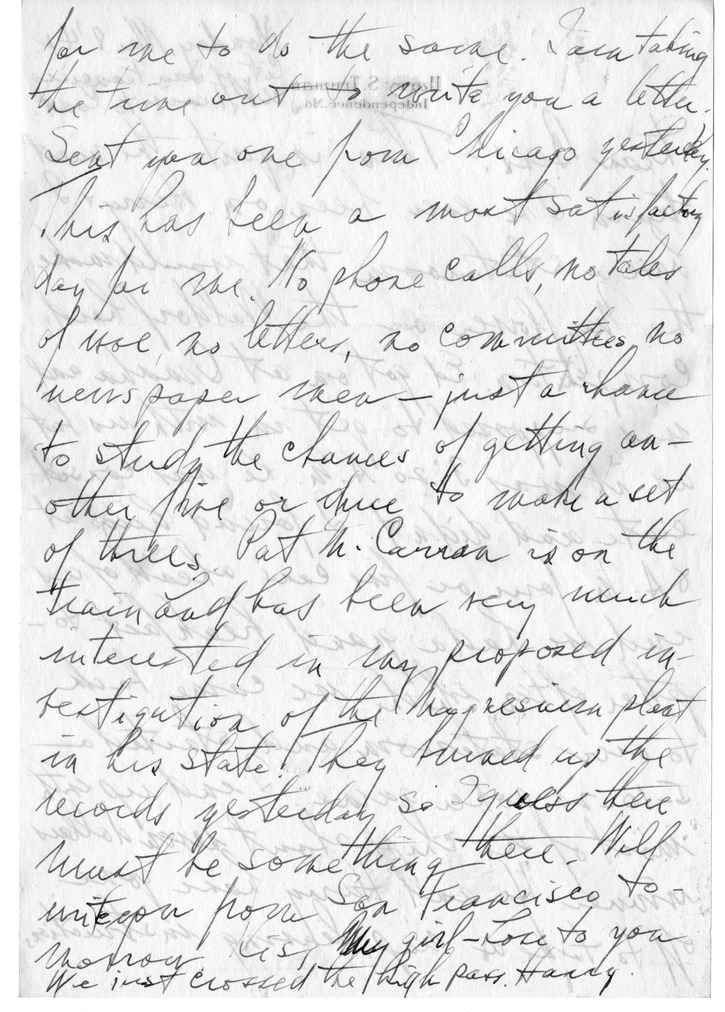 for me to do the same. I am taking
the time out to write you a letter.
Sent you one from Chicago yesterday.
This has been a most satisfactory
day for me. No phone calls, no tales
of woe, no letters, no committees, no
newspaper men – just a chance
to study the chances of getting an-
other five or duce to make a set
of threes. Pat McCarran is on the
train and has been very much
interested in my proposed in-
vestigation of the magnesium plant
in his state. They burned up the
records yesterday so I guess there
must be something there. Will
write you from San Francisco to-
morrow. Kiss my girl – Love to you
We just crossed the high pass. Harry.
Harry S. Truman
Independence, Mo.